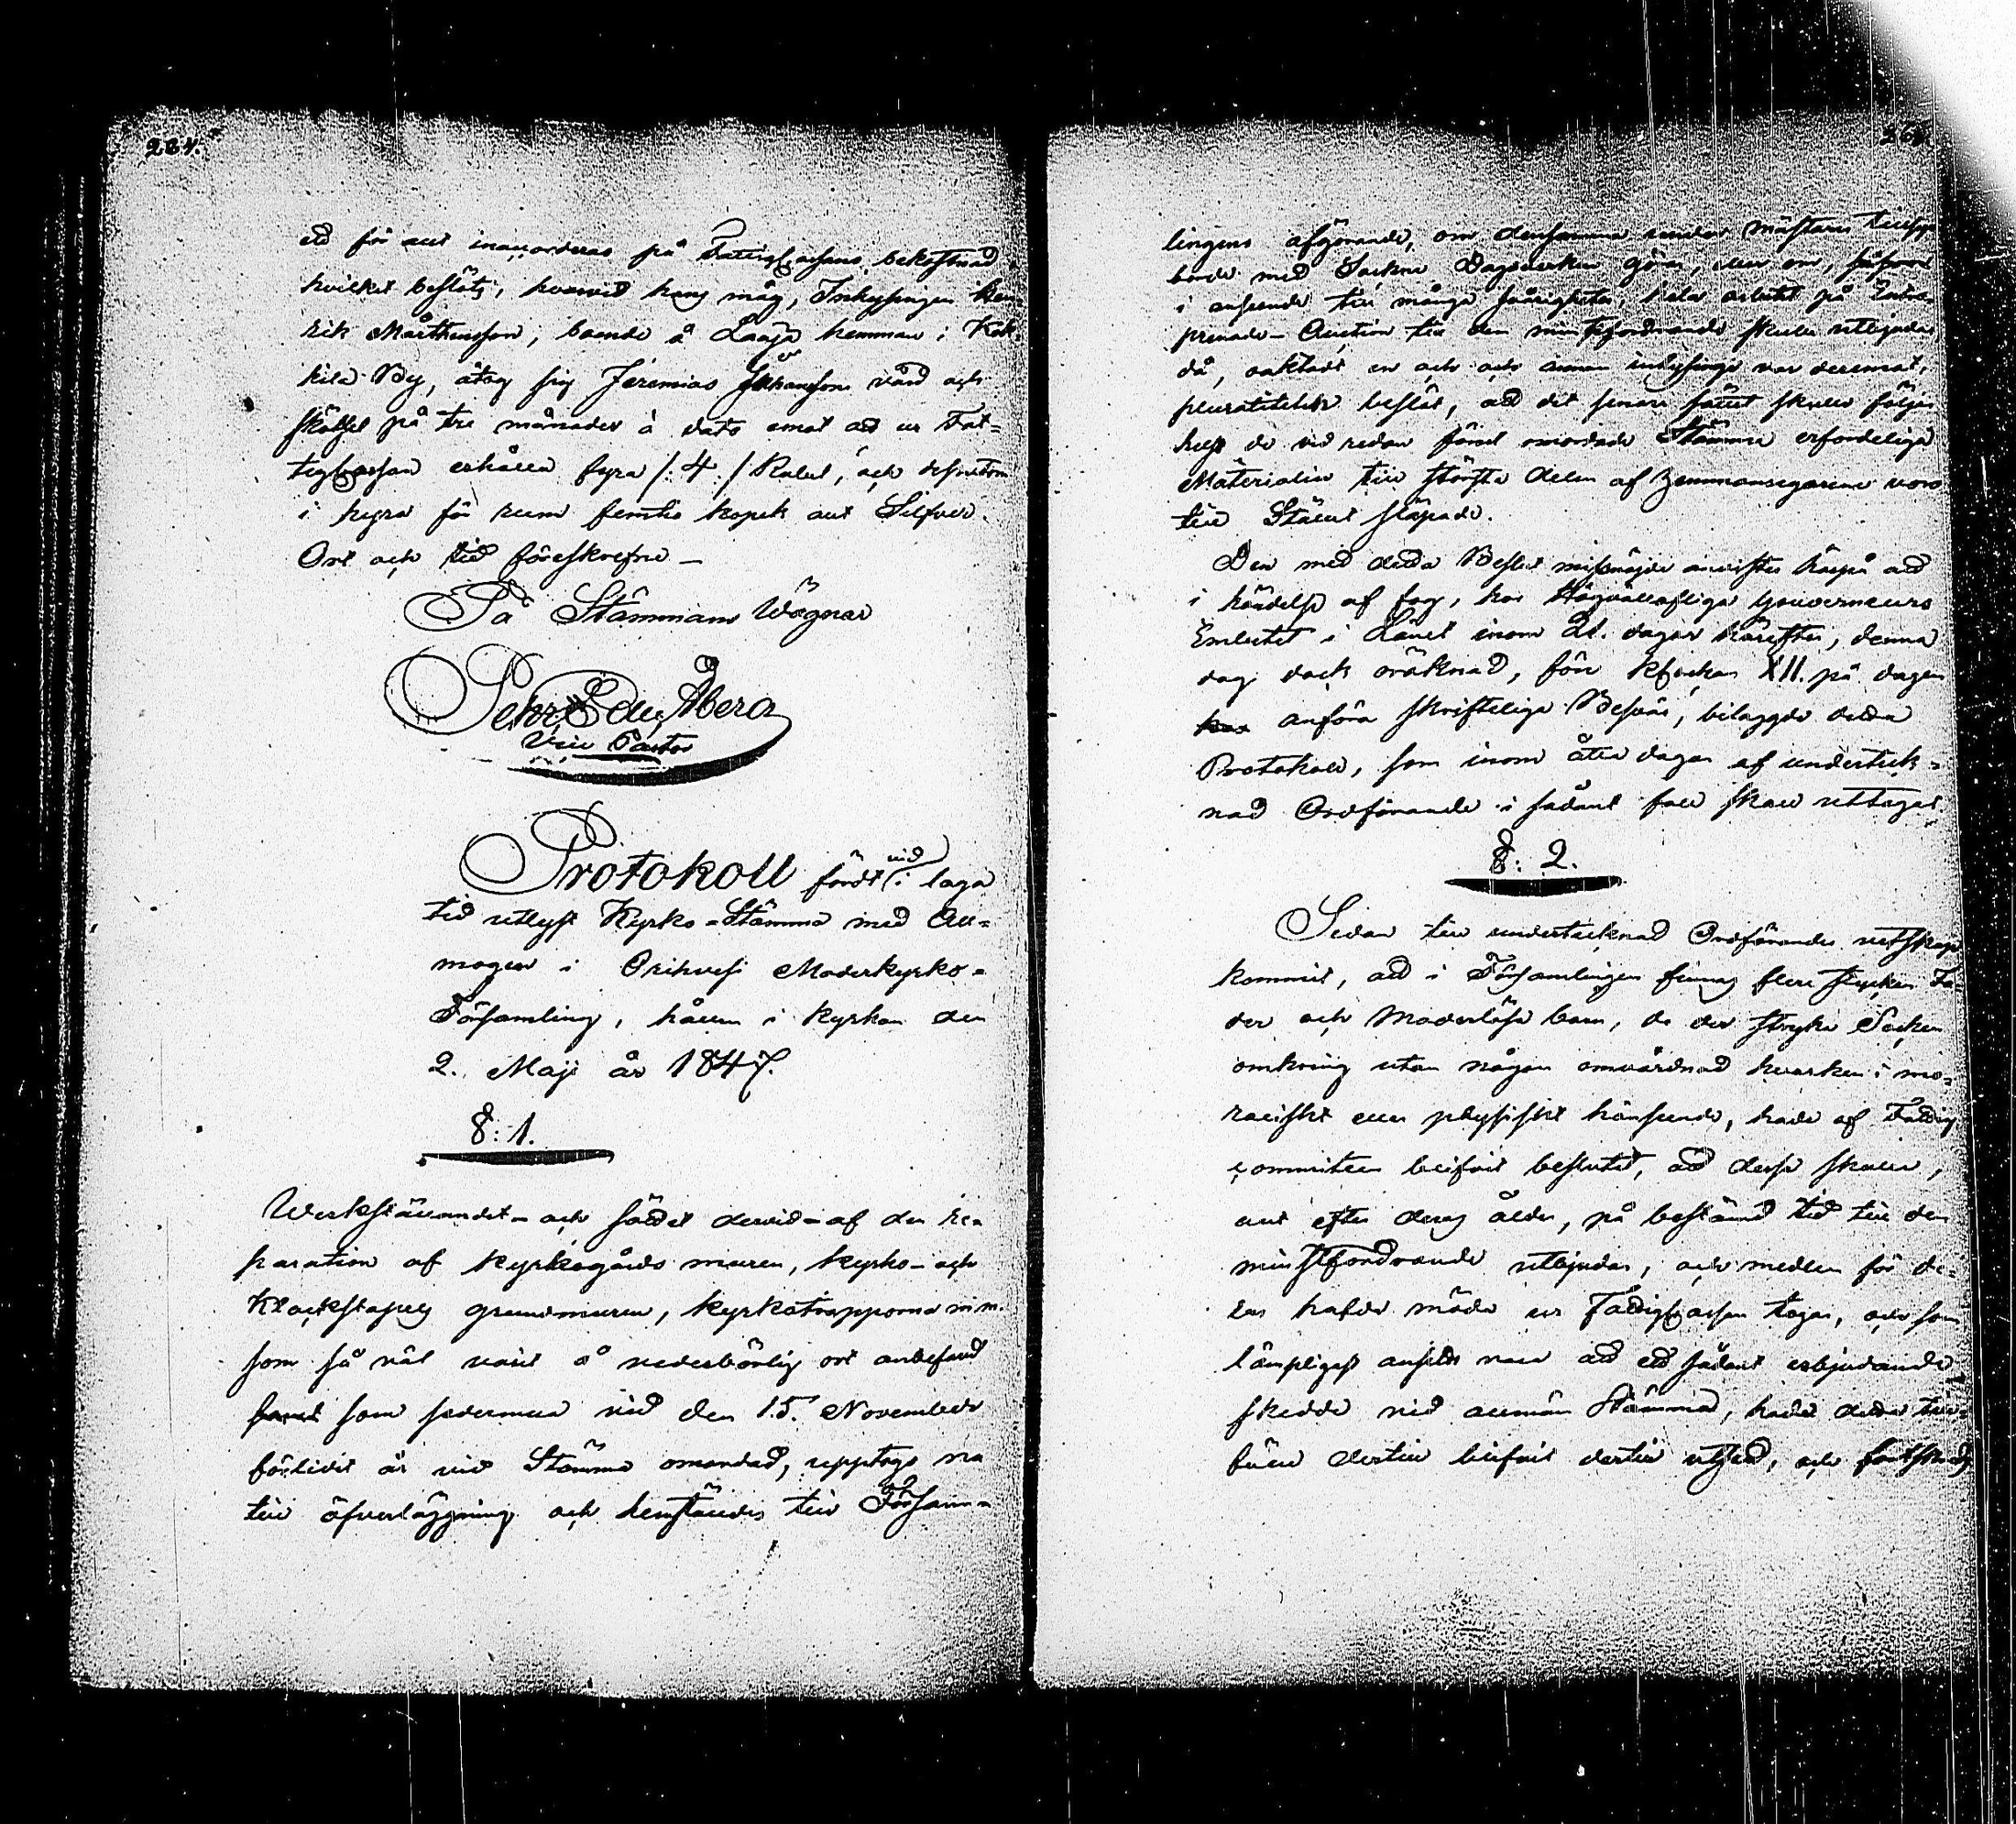 264.
ed för att inaccorderas på Fattigcassans bekostnad
hvilket beslöts, hvarvid hans måg, Inhysingen Hen-
rik Mårthensson, boende å Laaja hemman i Kok-
kila By, åtog sig Jeremias Johansson vård och
skötsel på tre månader à dato emot att ur Fat-
tigcassan erhålla fyra /: 4 :/ Rubel, och dessutom
i hyra för rum femtio kopek allt Silfver.
Ort och tid föreskrefne —
På Stämmans Wägnar
Pehr Edv. Åberg
Vice Pastor
Protokoll fördt vid i laga
tid utlyst Kyrko-Stämma med All-
mogen i Orihvesi Moderkyrko-
Församling, hållen i Kyrkan den
2. Maji år 1847.
§: 1.
Werkställandet- och sättet dervid- af den Re-
paration af Kyrkogårds muren, Kyrko- och
Klockstapels grundmuren, kyrkotrapporna m.m.
som så väl varit å vederbörlig ort anbefald
som sedermera vid den 15. November
förlidit år vid Stämma omandad, upptogs nu
till öfverläggning och hemställdes till Försam-
265.
lingens afgörande, om densamma under mästares tillsyn
borde med Sockne Dagsverken göras, eller om, såsom
i anseende till många svårigheter, hela arbetet på Entre-
prenade-Auction till den minstfordrande skulle utbjudas
då, oaktadt en och annan inhysinge var deremot,
pluraliteten beslöt, att det senare sättet skulle följas
helst de vid redan förut omordade Stämma erforderliga
Materialier till största delen af hemmansegarene voro
till Stället släpade.
Den med detta Beslut missnöjde anvistes härpå att
i händelse af fog, hos Högvällofliga Gouverneurs
Embetet i Länet inom 21. dagar härefter, denna
dag dock oräknad, före klockan XII. på dagen
anföra skriftelige Besvär, bilaggde detta
Protokoll, som inom åtta dagar af underteck-
nad Ordförande i sådant fall skall uttagas.
§: 2.
Sedan till undertecknad Ordförandes vetskap
kommit, att i Församlingen finnas flere stycken Fa-
der och Moderlösa barn, de der stryka Socken
omkring utan någon omvårdnad hvarken i mo-
raliskt eller physiskt hänseende, hade af Fattig
committeen blifvit beslutet, att desse skulle,
allt efter deras ålder, på bestämd tid till den
minstfordrande utbjudas, och medlen för de-
ras hafde möda ur Fattigcassan tagas, och som
lämpligast ansedts vara att ett sådant erbjudande
skedde vid allmän Stämma, hade detta till-
fälle dertill blifvit dertill utsedd, och